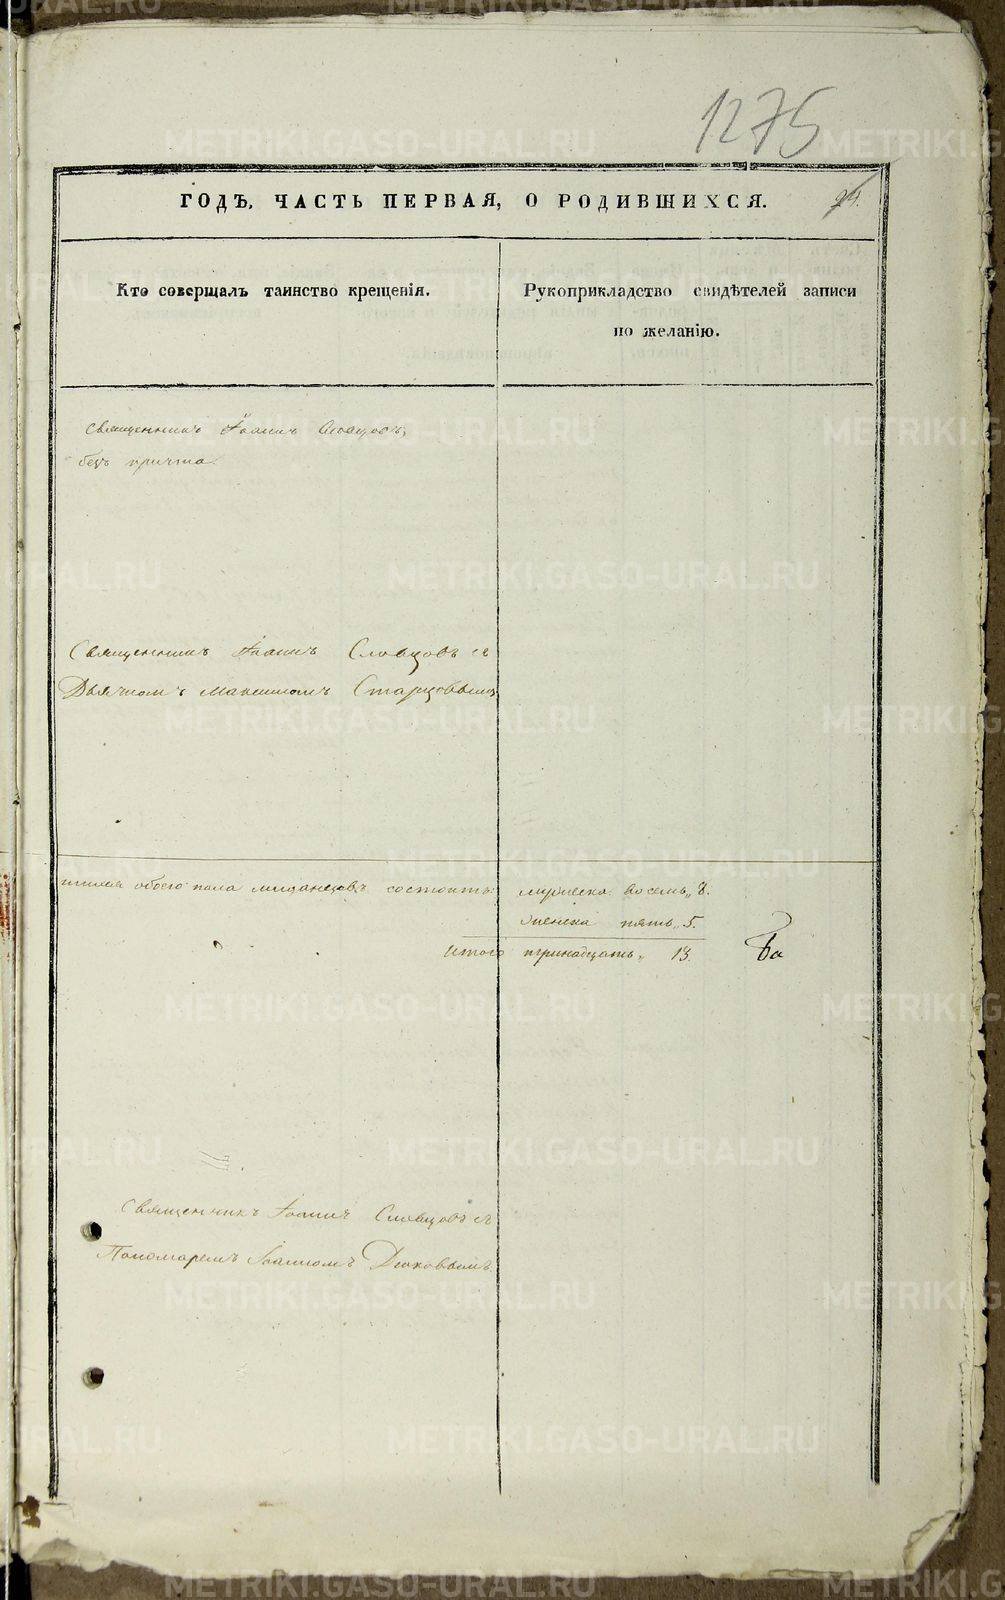 1275
ГОДЪ, ЧАСТЬ ПЕРВАЯ, О РОДИВШИХСЯ. 24.
Кто совершалъ таинство крещенія.
Рукоприкладство свидѣтелей записи
по желанію.
Священникъ Іоаннъ Словцовъ,
безъ причта.
Священникъ Іоаннъ Словцовъ съ
Дьячкомъ Максимомъ Старцовымъ
обоего пола младенцовъ состоитъ: мужеска восемь„ 8.
женска пять„ 5.
Итого тринадцать„ 13.
Священникъ Іоаннъ Словцовъ съ
Пономаремъ Іоанномъ Дьяковымъ
METRIKI.GASO-URAL.RU